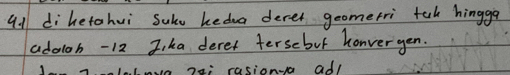 9.) diketahui suku kedua deret geometri tak hingga
adalah -12 Jika deret tersebut konvergen.
rasionya